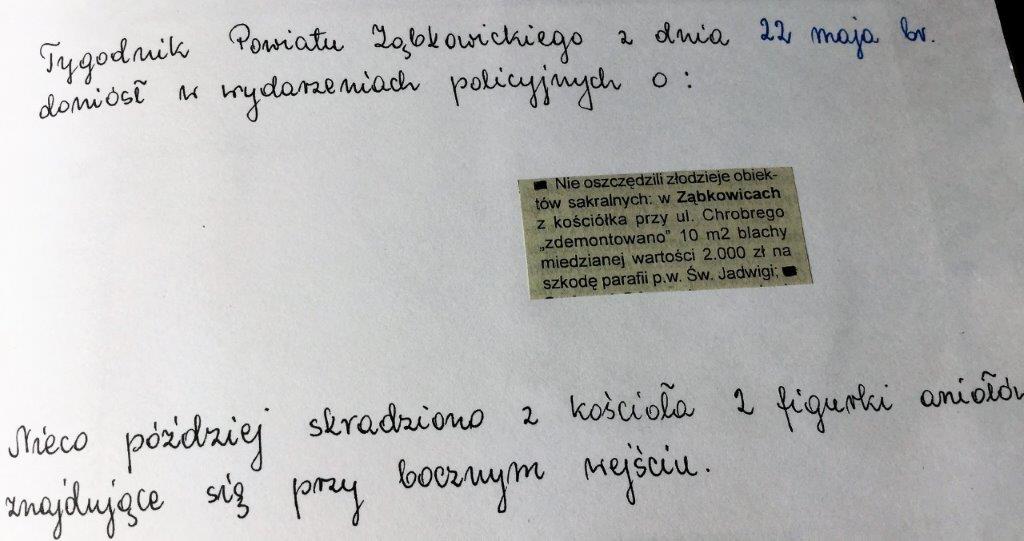 Tygodnik Powiatu Ząbkowickiego z dnia 22 maja br.
doniósł w wydarzeniach policyjnych o :
■ Nie oszczędzili złodzieje obiek-
tów sakralnych: w Ząbkowicach
z kościółka przy ul. Chrobrego
„zdemontowano” 10 m2 blachy
miedzianej wartości 2.000 zł na
szkodę parafii p.w. Św. Jadwigi; ■
Nieco póździej skradziono z kościoła 2 figurki aniołów
znajdujące się przy bocznym wejściu.